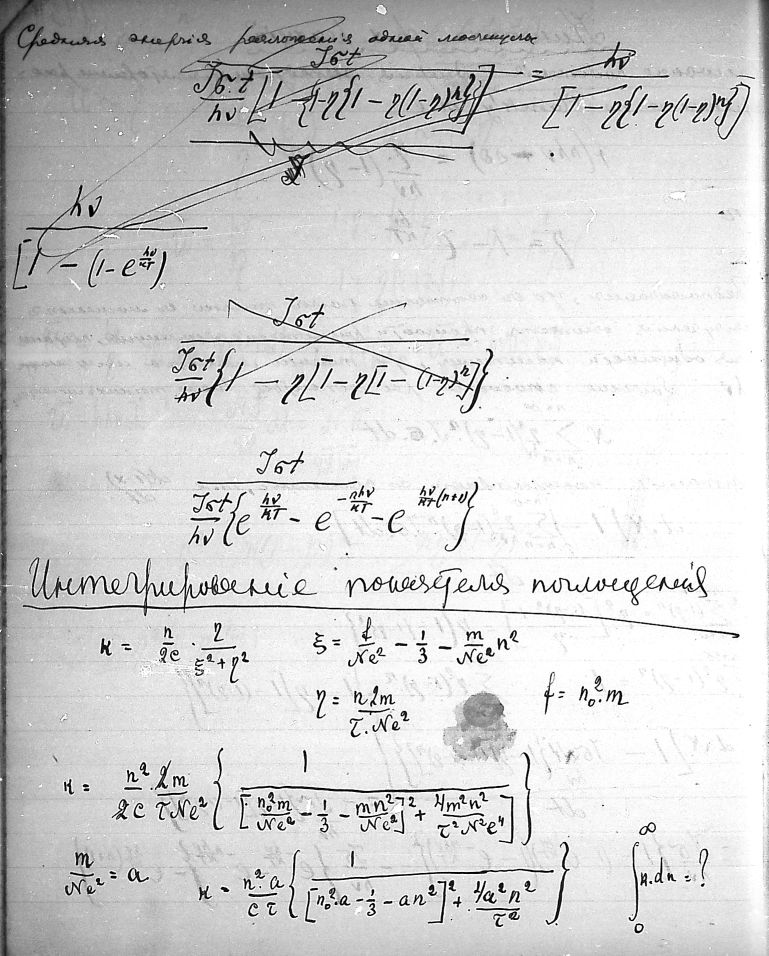 Средняя энергія разложенія одной молекулы
Jσt / (Jσ.t/hν [1 − {1−η{1 − η(1−η)^n}]) = hν / [1 − η{1−η(1−η)^n}]
hν / [1 − (1−e^(hν/KT))
Jσt / (Jσt/hν {1 − η[1−η[1 − (1−η)^n]})
Jσt / (Jσt/hν {e^(hν/KT) − e^(−nhν/KT) − e^(hν/KT (n+1))})
Интегрированіе показателя поглощенія
κ = n/2c · η/(ξ²+η²) ξ = f/Ne² − 1/3 − m/Ne² n²
η = n2m/(τ.Ne²) f = n₀².m
κ = n²/2c · 2m/(τNe²) { 1 / ([n₀²m/Ne² − 1/3 − mn²/Ne²]² + 4m²n²/(τ²N²e⁴)) }
m/Ne² = a κ = n².a/cτ { 1 / ([n₀².a − 1/3 − an²]² + 4a²n²/τ²) } ∫₀^∞ κ.dn = ?